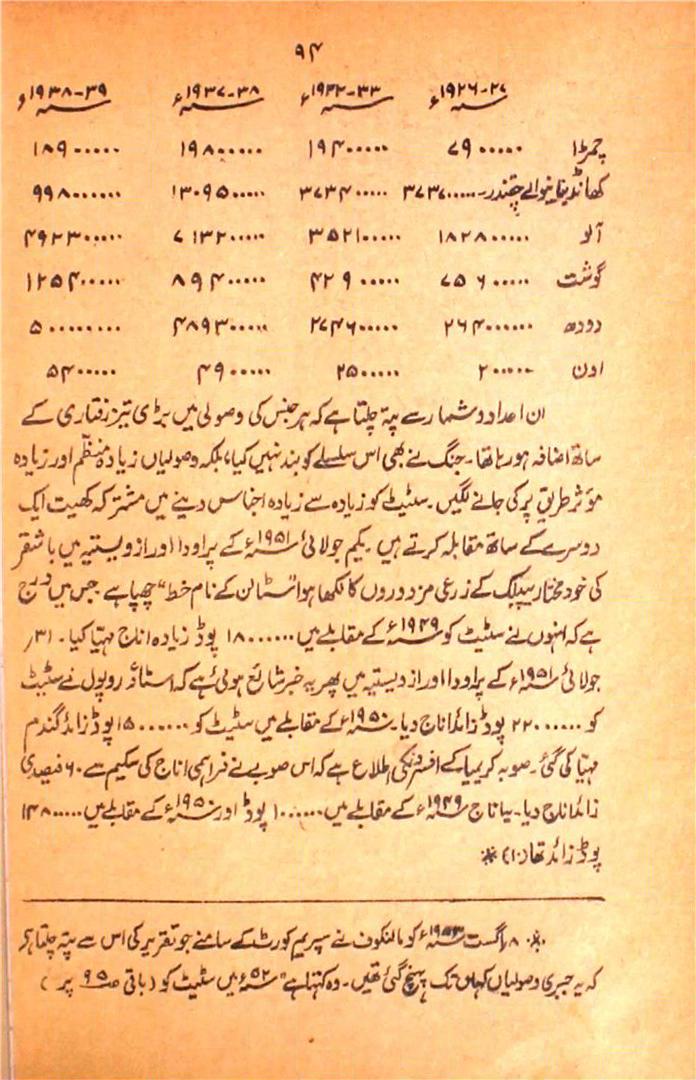 ۹۴
سنہ ۲۷-۱۹۲۶ء سنہ ۳۳-۱۹۳۲ء سنہ ۳۸-۱۹۳۷ء سنہ ۳۹-۱۹۳۸ء
چمڑا ۷۹۰۰۰۰۰ ۱۹۴۰۰۰۰۰ ۱۹۸۰۰۰۰۰ ۱۸۹۰۰۰۰۰
کھانڈ بنانیوالے چقندر۔ ۳۷۳۷۰۰۰۰۰ ۳۷۳۴۰۰۰۰۰ ۱۳۰۹۵۰۰۰۰۰ ۹۹۸۰۰۰۰۰۰
آلو ۱۸۲۸۰۰۰۰۰ ۳۵۲۱۰۰۰۰۰ ۷۱۳۲۰۰۰۰۰ ۴۹۲۳۰۰۰۰۰
گوشت ۷۵۶۰۰۰۰۰ ۴۲۹۰۰۰۰۰ ۸۹۴۰۰۰۰۰ ۱۲۵۴۰۰۰۰۰
دودھ ۲۶۴۰۰۰۰۰۰ ۲۷۴۶۰۰۰۰۰ ۴۸۹۳۰۰۰۰۰ ۵۰۰۰۰۰۰۰۰
اون ۲۰۰۰۰۰ ۲۵۰۰۰۰۰ ۴۹۰۰۰۰۰ ۵۴۰۰۰۰۰
ان اعداد و شمار سے پتہ چلتا ہے کہ ہر جنس کی وصولی میں بڑی تیز رفتاری کے
ساتھ اضافہ ہو رہا تھا۔ جنگ نے بھی اس سلسلے کو بند نہیں کیا، بلکہ وصولیاں زیادہ منظّم اور زیادہ
مؤثر طریق پر کی جانے لگیں۔ سٹیٹ کو زیادہ سے زیادہ اجناس دینے میں مشترکہ کھیت ایک
دوسرے کے ساتھ مقابلہ کرتے ہیں۔ یکم جولائی سنہ ۱۹۵۱ء کے پراودا اور ازویستیہ میں باشقر
کی خود مختار ریپبلک کے زرعی مزدوروں کا لکھا ہوا "سٹالن کے نام خط" چھپا ہے جس میں درج
ہے کہ انہوں نے سٹیٹ کو سنہ ۱۹۴۹ء کے مقابلے میں ۱۸۰۰۰۰۰۰ پوڈ زیادہ اناج مہیّا کیا۔ ۳۱؍
جولائی سنہ ۱۹۵۱ء کے پراودا اور ازویستیہ میں پھر یہ خبر شائع ہوئی ہے کہ اسٹاوروپول نے سٹیٹ
کو ۲۲۰۰۰۰۰۰ پوڈ زائد اناج دیا۔ سنہ ۱۹۵۰ء کے مقابلے میں سٹیٹ کو ۱۵۰۰۰۰۰۰ پوڈ زائد گندم
مہیّا کی گئی۔ صوبہ کریمیا کے افسروں کی اطلاع ہے کہ اس صوبے نے فراہمی اناج کی سکیم سے ۶۰ فیصدی
زائد اناج دیا۔ یہ اناج سنہ ۱۹۴۹ء کے مقابلے میں ۱۰۰۰۰۰۰ پوڈ اور سنہ ۱۹۵۰ء کے مقابلے میں ۱۴۸۰۰۰۰۰
پوڈ زائد تھا (۱۰) *
*۔ ۸؍اگست سنہ ۱۹۵۳ء کو مالنکوف نے سپریم کورٹ کے سامنے جو تقریر کی اس سے پتہ چلتا ہے
کہ یہ جبری وصولیاں کہاں تک پہنچ گئی تھیں۔ وہ کہتا ہے "سنہ ۵۲ء میں سٹیٹ کو (باقی صـ ۹۵ پر)